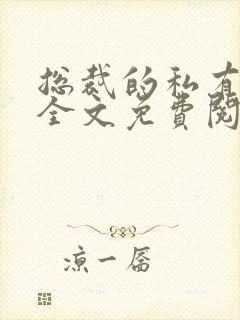 总裁的私有
全文免費閱
凉一